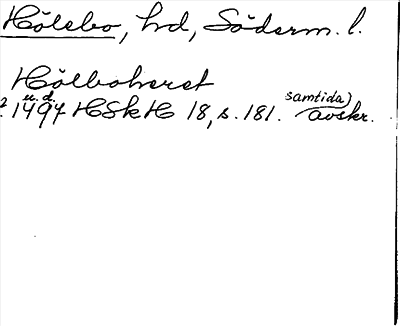 Hölebo, hd, Söderm. l.
Hölboherat
? 1497 u.d. HSkH 18, s. 181. samtida) avskr.